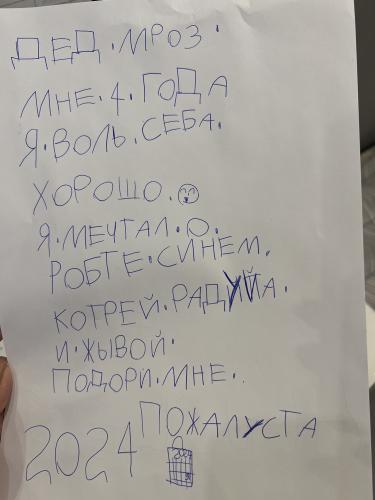 ДЕД.МРОЗ.
МНЕ.4.ГОДА
Я.ВОЛЬ.СЕБА.
ХОРОШО.
Я.МЕЧТАЛ.О.
РОБТЕ.СИНЕМ.
КОТРЕЙ.РАДУЙА.
И.ЖЫВОЙ.
ПОДОРИ.МНЕ.
ПОЖАЛУСТА
2024